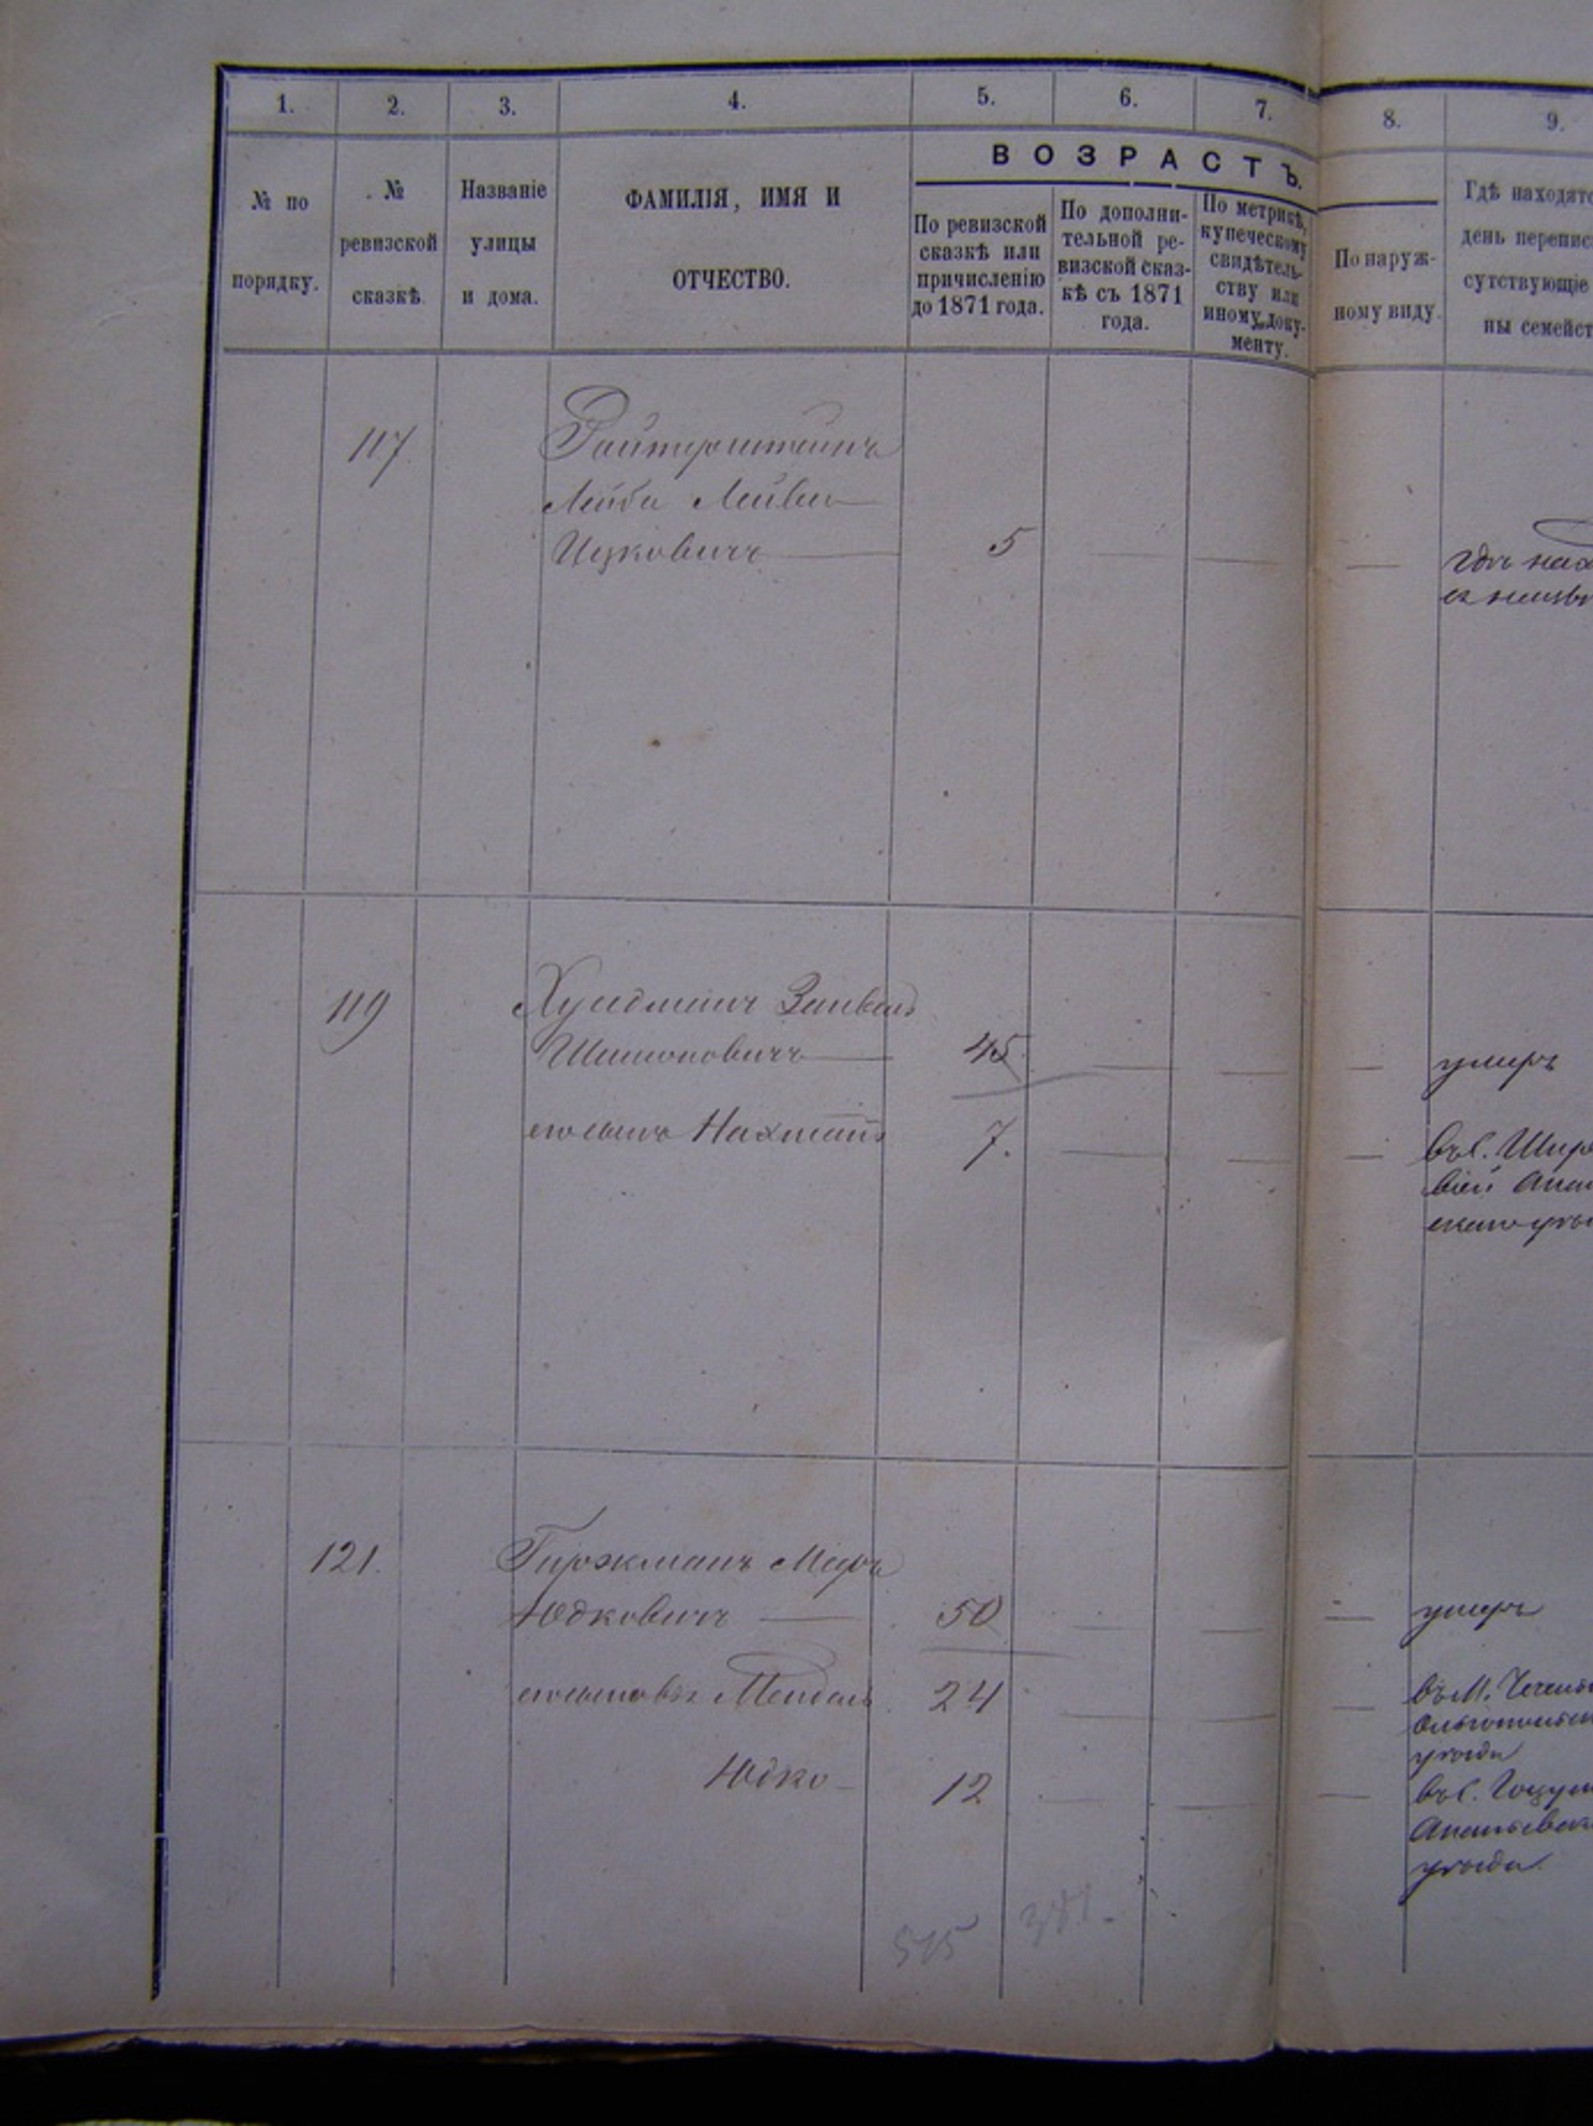 1. 2. 3. 4. 5. 6. 7. 8. 9.
№ по порядку.
№ ревизской сказкѣ.
Названіе улицы и дома.
ФАМИЛІЯ, ИМЯ И
ОТЧЕСТВО.
ВОЗРАСТЪ.
По ревизской
сказкѣ или
причисленію
до 1871 года.
По дополни-
тельной ре-
визской сказ-
кѣ съ 1871
года.
По метрикѣ,
купеческому
свидѣтель-
ству или
иному доку-
менту.
По наруж-
ному виду.
Гдѣ находятс
день перепис
сутствующіе
ны семейст
117
Лейба Лейви
Ицковичъ 5
гдѣ нах
119
Зейвель
Шимоновичъ 45 умеръ
его сынъ Нахманъ 7. въ с. Шир
121. Гиржманъ Меръ
Юдковичъ 50 умеръ
его сыновья Мендель 24 въ м.
уѣзда
Юдко 12 въ с.
Ананьевск
уѣзда.
515 381.